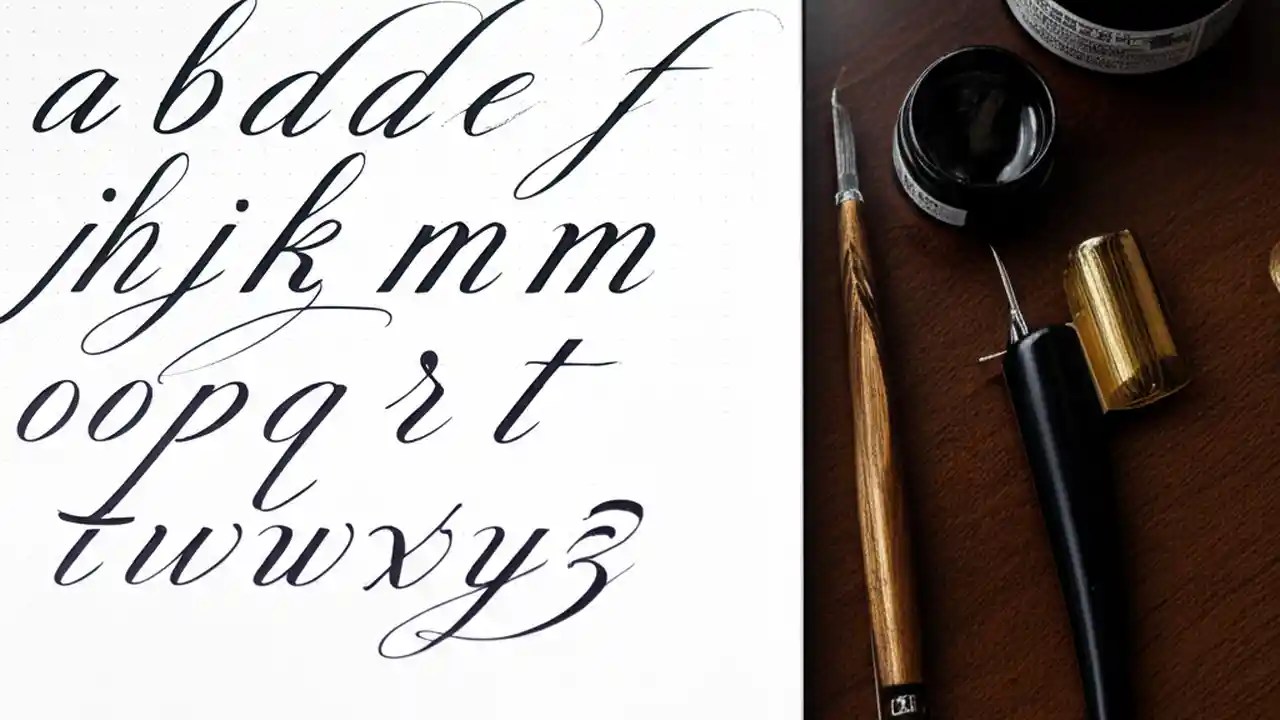 a b d d e f
j h j k m m
o o p q r t
t w w x y z